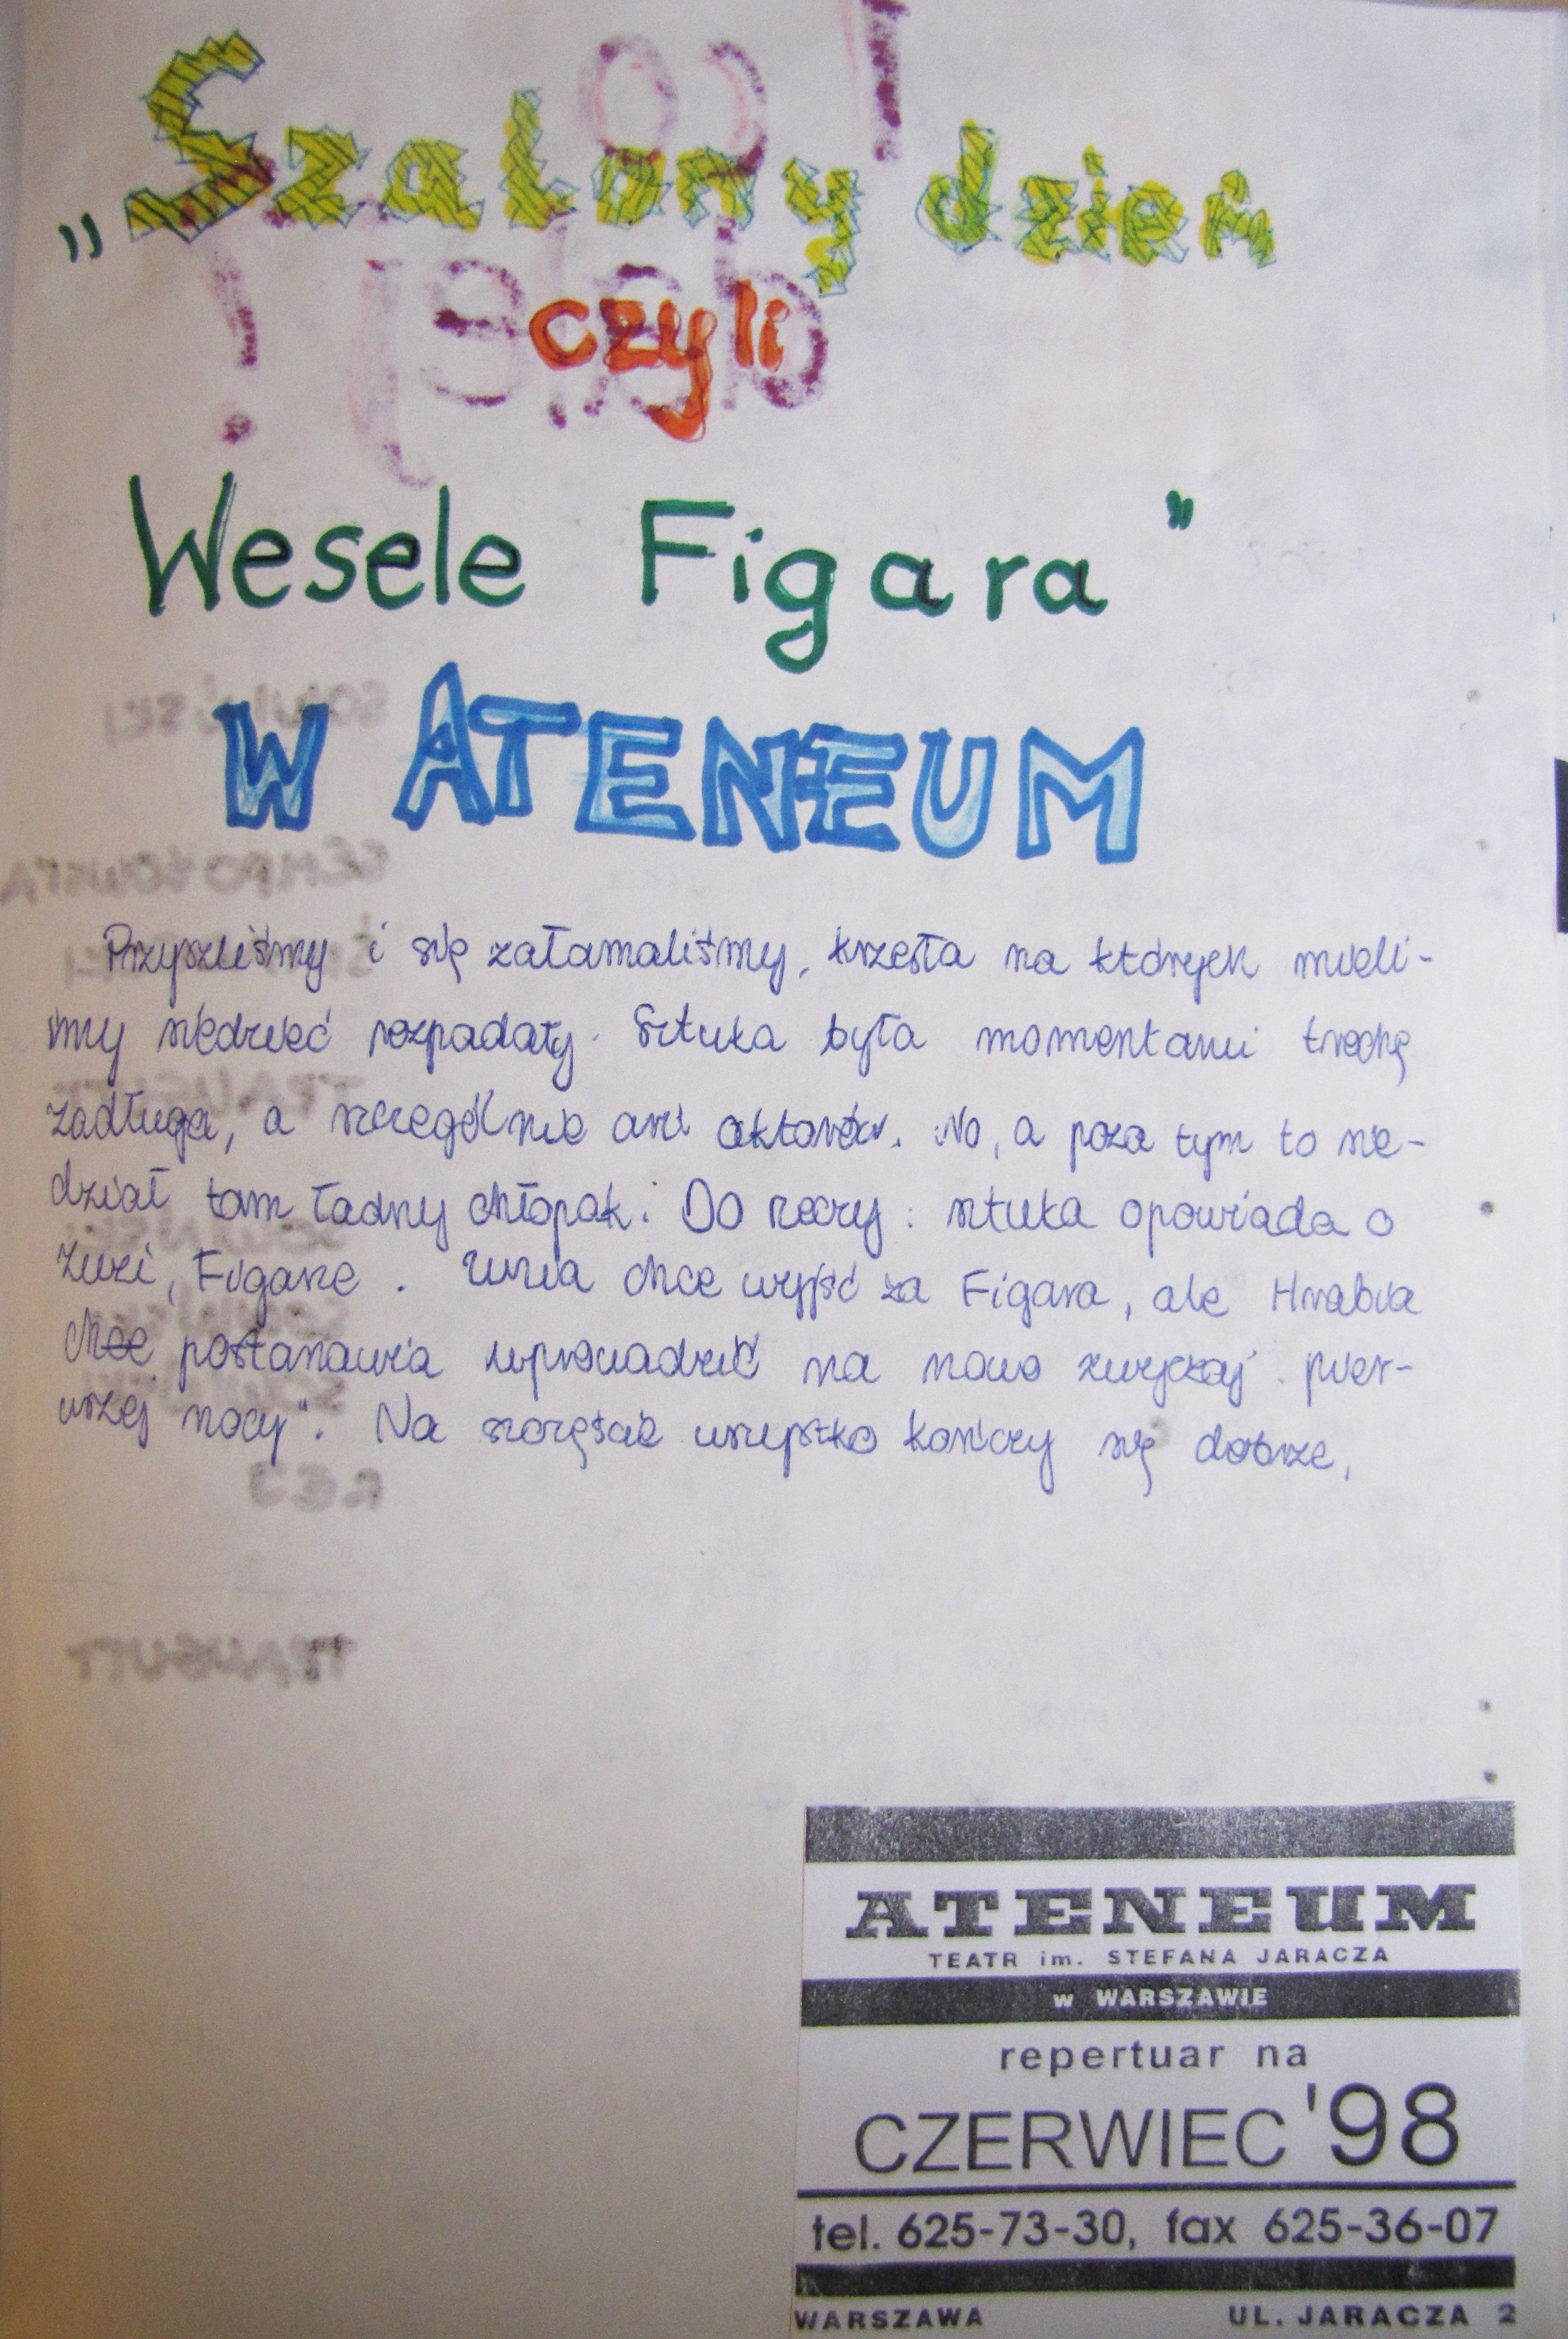 „Szalony dzień
czyli
Wesele Figara”
W ATENEUM
Przyszliśmy i się załamaliśmy, krzesła na których mieli-
śmy siedzieć rozpadały. Sztuka była momentami trochę
zadługa, a szczególnie aktorów. No, a poza tym to sie-
dział tam ładny chłopak. Do rzeczy: sztuka opowiada o
Zuzi, Figarze. Zuzia chce wyjść za Figara, ale Hrabia
chce postanawia wprowadzić na nowo zwyczaj „pier-
wszej nocy“. Na szczęście wszystko kończy się dobrze.
ATENEUM
TEATR im. STEFANA JARACZA
w WARSZAWIE
repertuar na
CZERWIEC '98
tel. 625-73-30, fax 625-36-07
WARSZAWA UL. JARACZA 2